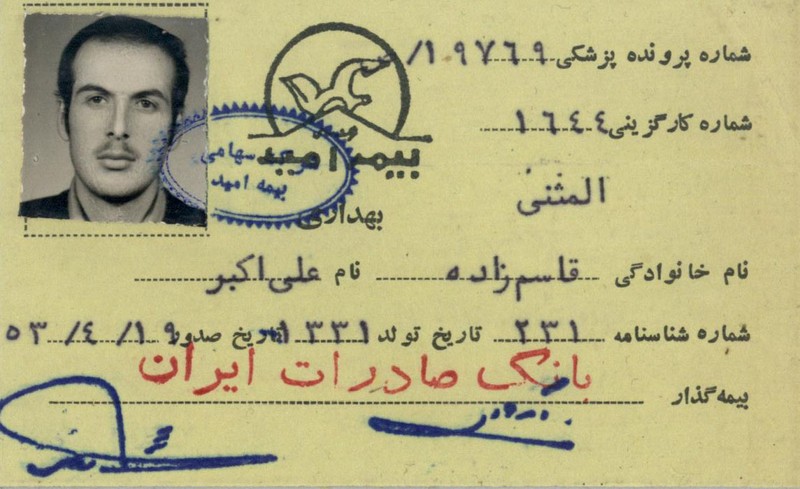 شماره پرونده پزشکی ۱۹۷٦۹/
شماره کارگزینی ۱٦٤٤
بیمه امید
شرکت سهامی
بیمه امید
المثنی
بهداری
نام خانوادگی قاسم‌زاده نام علی‌اکبر
شماره شناسنامه ۲۳۱ تاریخ تولد ۱۳۳۱ تاریخ صدور ۱۹/٤/۵۳
بانک صادرات ایران
بیمه‌گذار